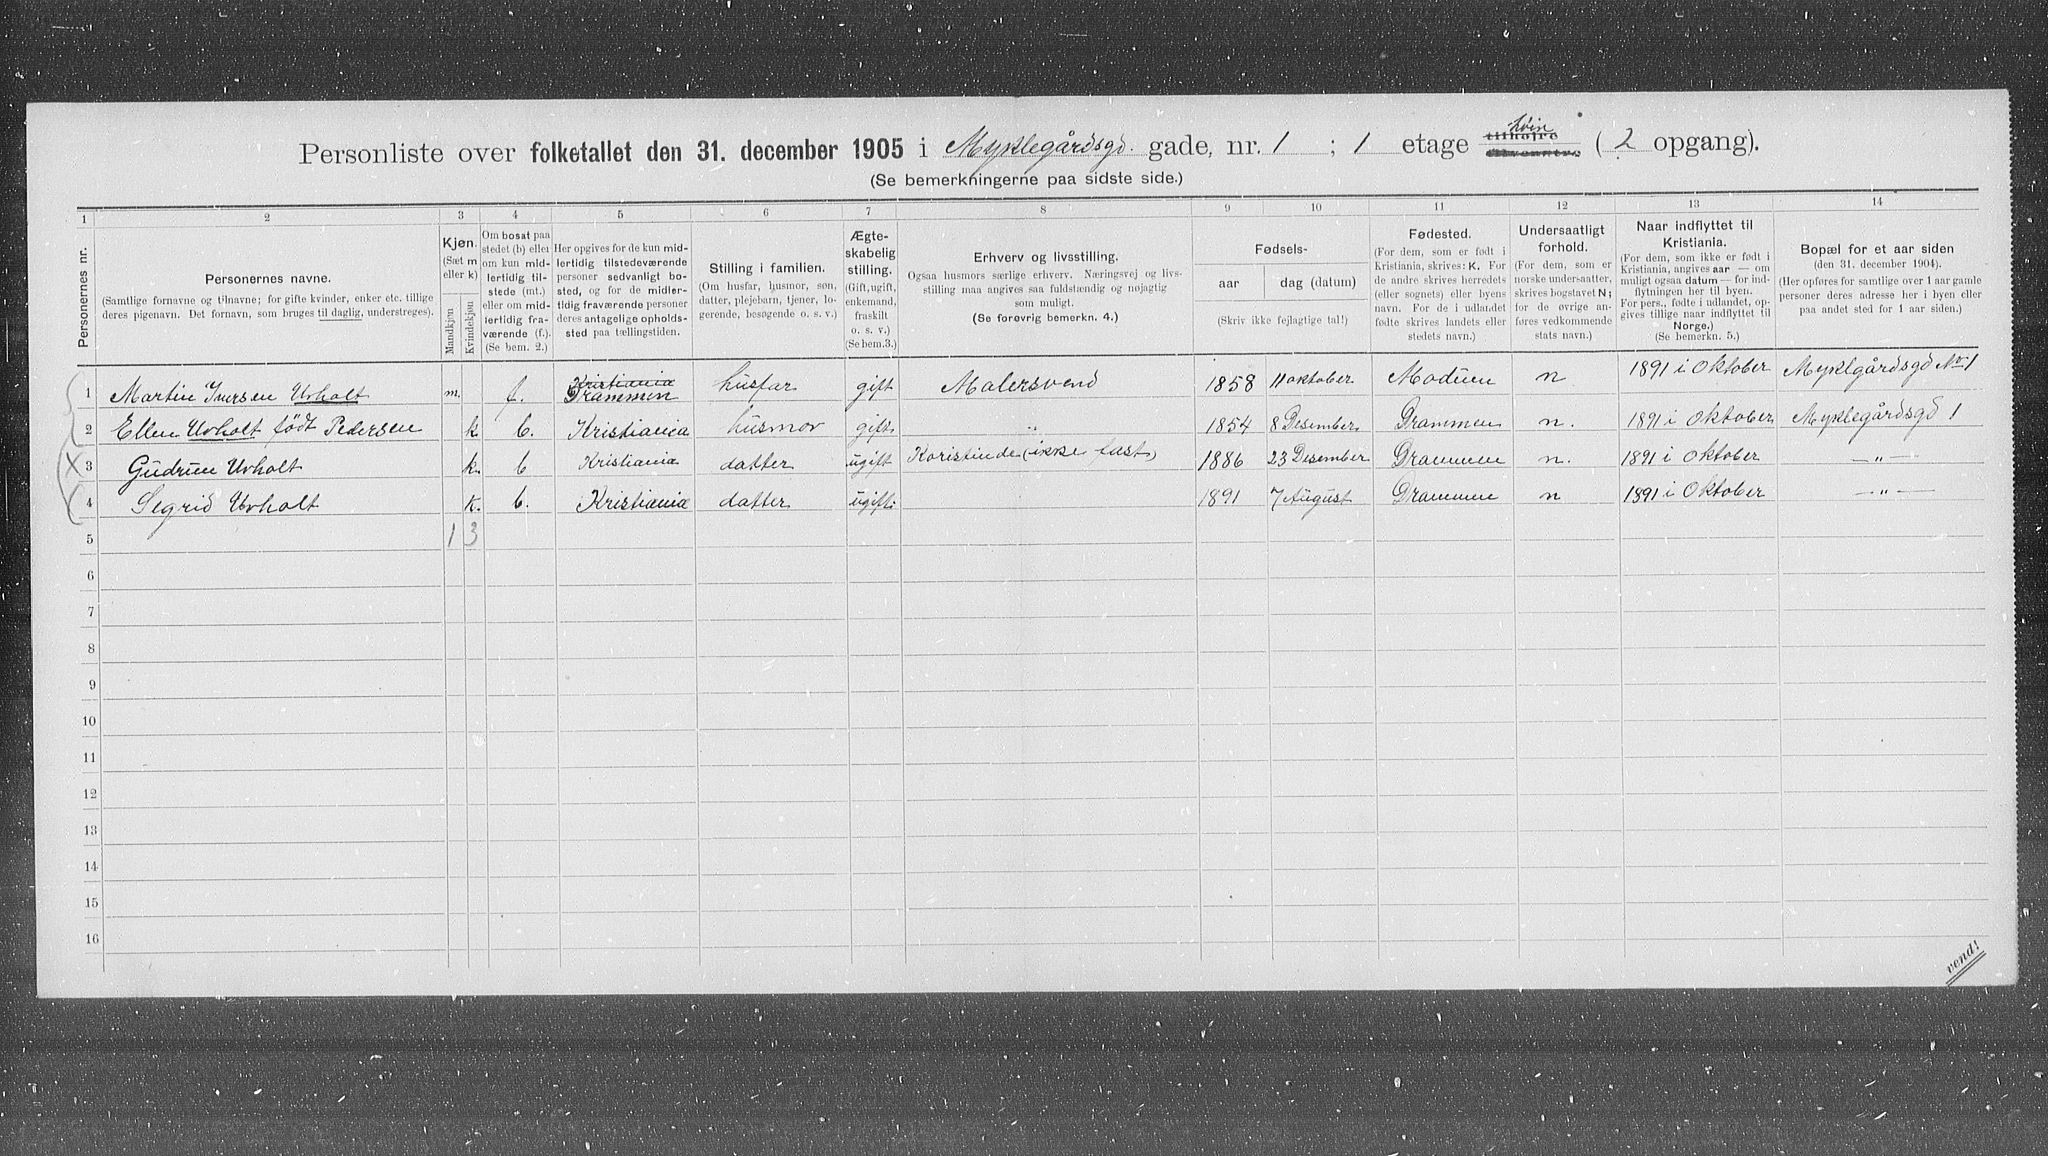 Personliste over folketallet den 31. december 1905 i Myklegårdsgd. gade, nr. 1 ; 1 etage tilhøjre høin (2 opgang).
(Se bemerkningerne paa sidste side.)
1 2 3 4 5 6 7 8 9 10 11 12 13 14
Personernes nr.
Personernes navne.
(Samtlige fornavne og tilnavne; for gifte kvinder, enker etc. tillige deres pigenavn. Det fornavn, som bruges til daglig, understreges).
Kjøn.
(Sæt m eller k)
Mandkjøn
Kvindekjøn
Om bosat paa stedet (b) eller om kun midlertidig tilstede (mt.) eller om midlertidig fraværende (f.). (Se bem. 2.)
Her opgives for de kun midlertidig tilstedeværende personer sedvanligt bosted, og for de midlertidig fraværende personer deres antagelige opholdssted paa tællingstiden.
Stilling i familien.
(Om husfar, husmor, søn, datter, plejebarn, tjener, logerende, besøgende o. s. v.)
Ægteskabelig stilling.
(Gift, ugift, enkemand, fraskilt o. s. v.)
(Se bem.3.)
Erhverv og livsstilling.
Ogsaa husmors særlige erhverv. Næringsvej og livsstilling maa angives saa fuldstændig og nøjagtig som muligt.
(Se forøvrig bemerkn. 4.)
Fødsels-
aar dag (datum)
(Skriv ikke fejlagtige tal!)
Fødested.
(For dem, som er født i Kristiania, skrives: K. For de andre skrives herredets (eller sognets) eller byens navn. For de i udlandet fødte skrives landets eller stedets navn.)
Undersaatligt forhold.
(For dem, som er norske undersaatter, skrives bogstavet N; for de øvrige anføres vedkommende stats navn.)
Naar indflyttet til Kristiania.
(For dem, som ikke er født i Kristiania, angives aar — om muligt ogsaa datum — for indflytningen her til byen. For pers., fødte i udlandet, opgives tillige naar indflyttet til Norge.)
(Se bemerkn. 5.)
Bopæl for et aar siden
(den 31. december 1904).
(Her opføres for samtlige over 1 aar gamle personer deres adresse her i byen eller paa andet sted for 1 aar siden.)
1 Martin Iversen Urholt m. f. Kristiania Drammen husfar gift Malersvend 1858 11 oktober Moduen n 1891 i Oktober Myklgårdsgd No 1
2 Ellen Urholt født Pedersen k b. Kristiania husmor gift " 1854 8 Desember Drammen n. 1891 i Oktober Myklegårdsgd 1
3 Gudrun Urholt k. b Kristiania datter ugift Koristinde (ikke fast) 1886 23 Desember Drammen n. 1891 i Oktober —"—
4 Segrid Urholt k. b. Kristiania datter ugift. 1891 7 August Drammen n 1891 i Oktober —"—
5 1 3
6
7
8
9
10
11
12
13
14
15
16
vend!